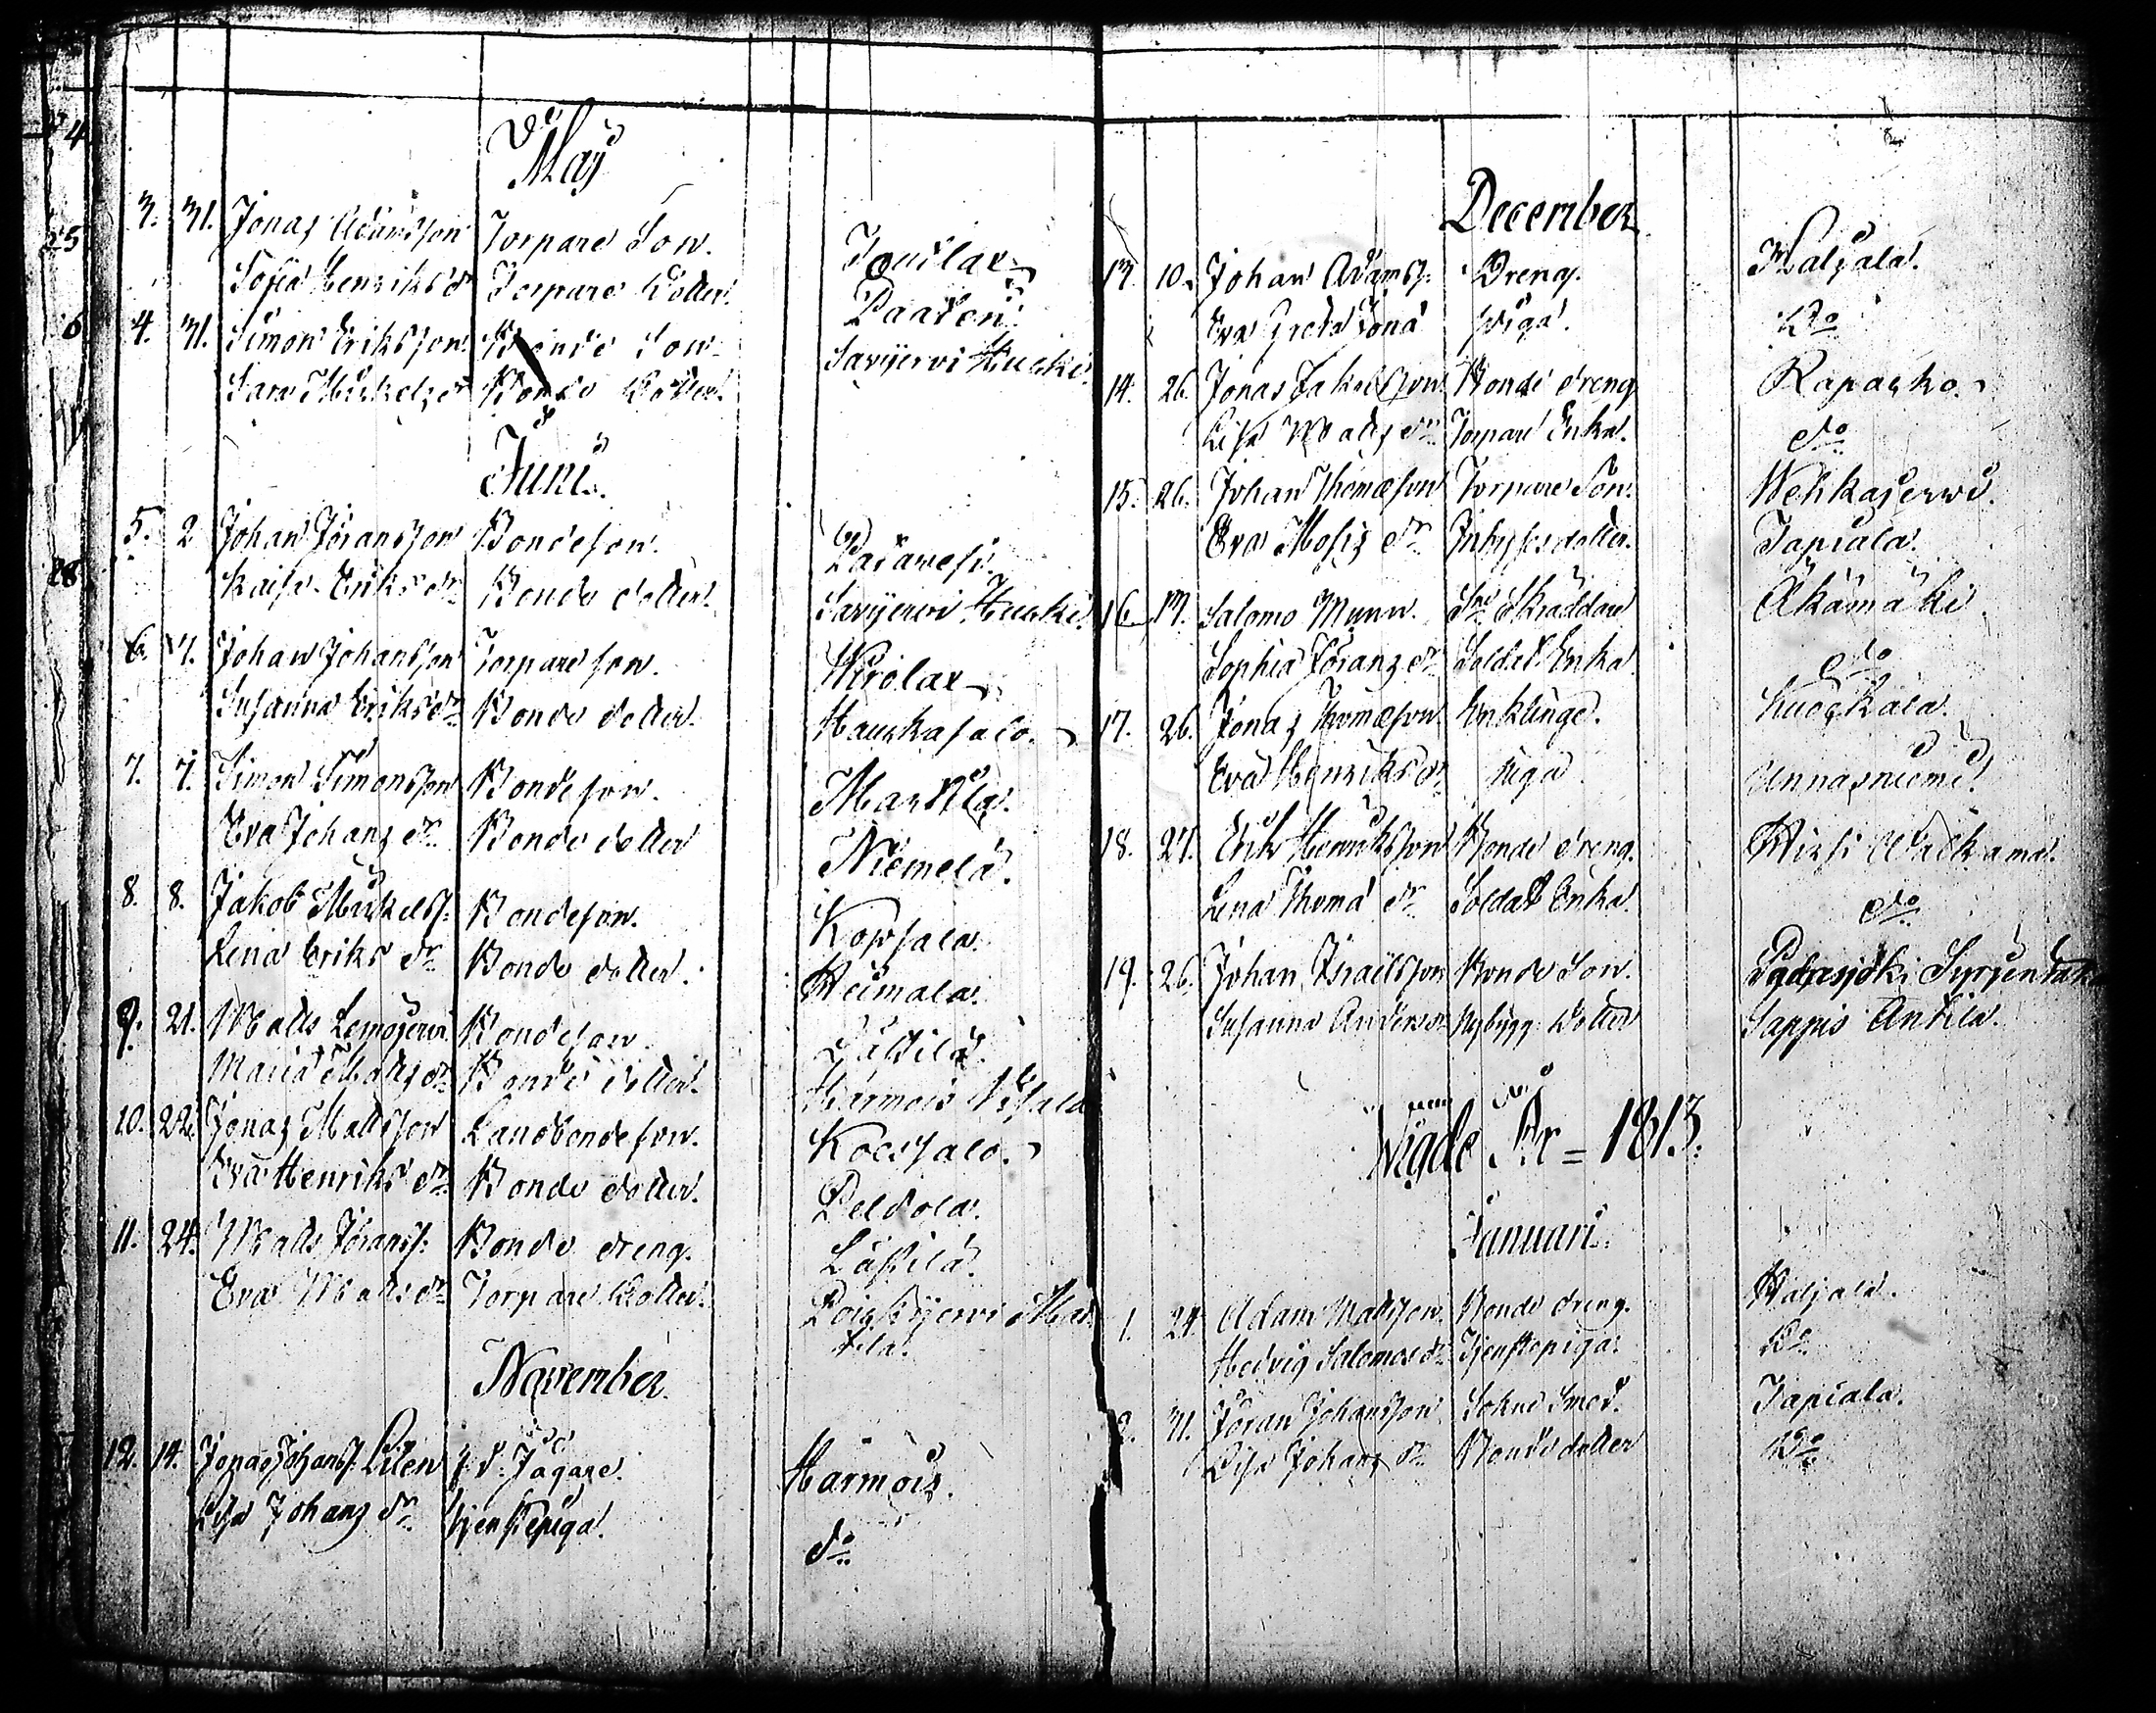 Maij
3. 31. Jonas Adamsson Torpare Son. Tousilax
Sofia Henriksdr Torpare Dotter. Paateri
4. 31. Simon Eriksson Bonde Son Sarijervi Huuki
Sara Michelsdr Bonde Dotter.
Junii.
5. 2 Johan Jöransson Bondeson. Padarvesi
Kaisa Eriksdr Bonde dotter. Sarijervi Huuki
6. 7. Johan Johansson Torpareson. Wirolax
Susanna Eriksdr Bonde dotter. Hauskasalo.
7. 7. Simon Simonsson Bondeson. Marttila.
Eva Johansdr Bonde dotter Niemelä.
8. 8. Jakob Mickelss: Bondeson. Kopsala
Lena Eriks dr Bonde dotter. Heimala.
9. 21. Matts Bondeson
Maria Matsdr Bonde dotter. Harmois
10. 22. Jonas Mattsson Landbondeson. Koessalo.
Eva Henriks dr Bonde dotter. Peltola.
11. 24. Matts Jöranss: Bonde dreng. Läsilä.
Eva Matsdr Torpare Dotter. Mar
tila.
November
12. 14. Jonas Johanss. Lilen f. d. Jägare. Harmois.
Lisa Johans dr tjenstepiga. do
December
13. 10. Johan Adamss. Dreng. Haljala.
Eva Greta Jona piga. Do
14. 26. Jonas Jakobsson Bonde dreng Rapasko.
Lisa Mats dr Torpare Enka. do
15. 26. Johan Thomæson Torpare Son. Wehkajerwi.
Eva Mosis dr Inhysesdotter. Tapiala.
16. 17. Salomo Munn. Sne Skräddare Äkämäki
Sophia Jörans dr Soldat Enka do
17. 26. Jonas Thomæson Enklinge. Kuoskala.
Eva Henriksdr piga Annasniemi
18. 27. Erik Henriksson Bonde dreng. Hirsi
Lena Thoma dr Soldat Enka. do
19. 26. Johan Israelsson Bonde Son. Padasjoki
Susanna Andersdr Nybygg. Dotter Sappis Antila.
Wigde År = 1813.
Januari.
1. 24. Adam Matsson. Bonde dreng. Haljala.
Hedvig Salomosdr Tjenstepiga. Do
2. 31. Jöran Johansson. Sokne Smed. Tapiala.
Lisa Johans dr Bonde dotter Do